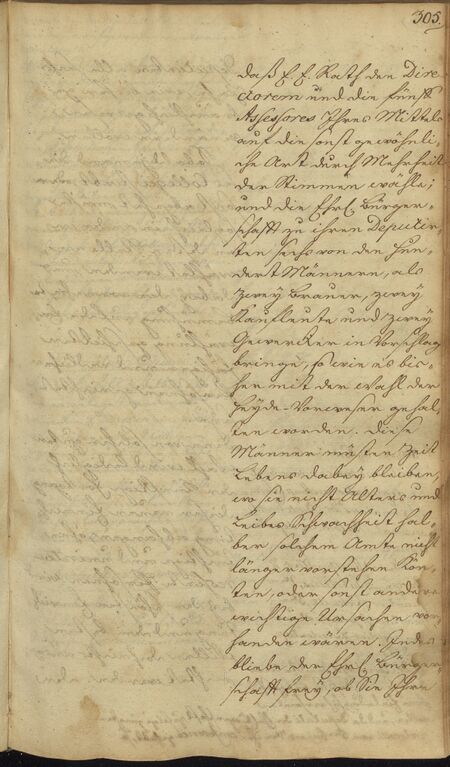 305.
daß E. E. Rath den Dire
ctorem und die fünff
Assessores Ihres Mittels
auf die sonst gewöhnli-
che Art durch Mehrheit
der Stimmen wähle;
und die Ehrl. Bürger-
schafft zu ihren Deputir-
ten sechs von den Hun-
dert Männern, als
zwey Brauer, zwey
Kaufleute und zwey
Gewercker in Vorschlag
bringe, so wie es bis-
her mit der Wahl der
Heyde-Vorweser gehal-
ten worden. Diese
Männer müsten Zeit
Lebens dabey bleiben,
wo sie nicht Alters und
Leibes Schwachheit hal-
ber solchem Amte nicht
länger vorstehen kön-
ten, oder sonst andere
wichtige Ursachen vor-
handen wären. Indeß
bliebe der Ehrl. Bürger
schafft frey, ob Sie Ihre